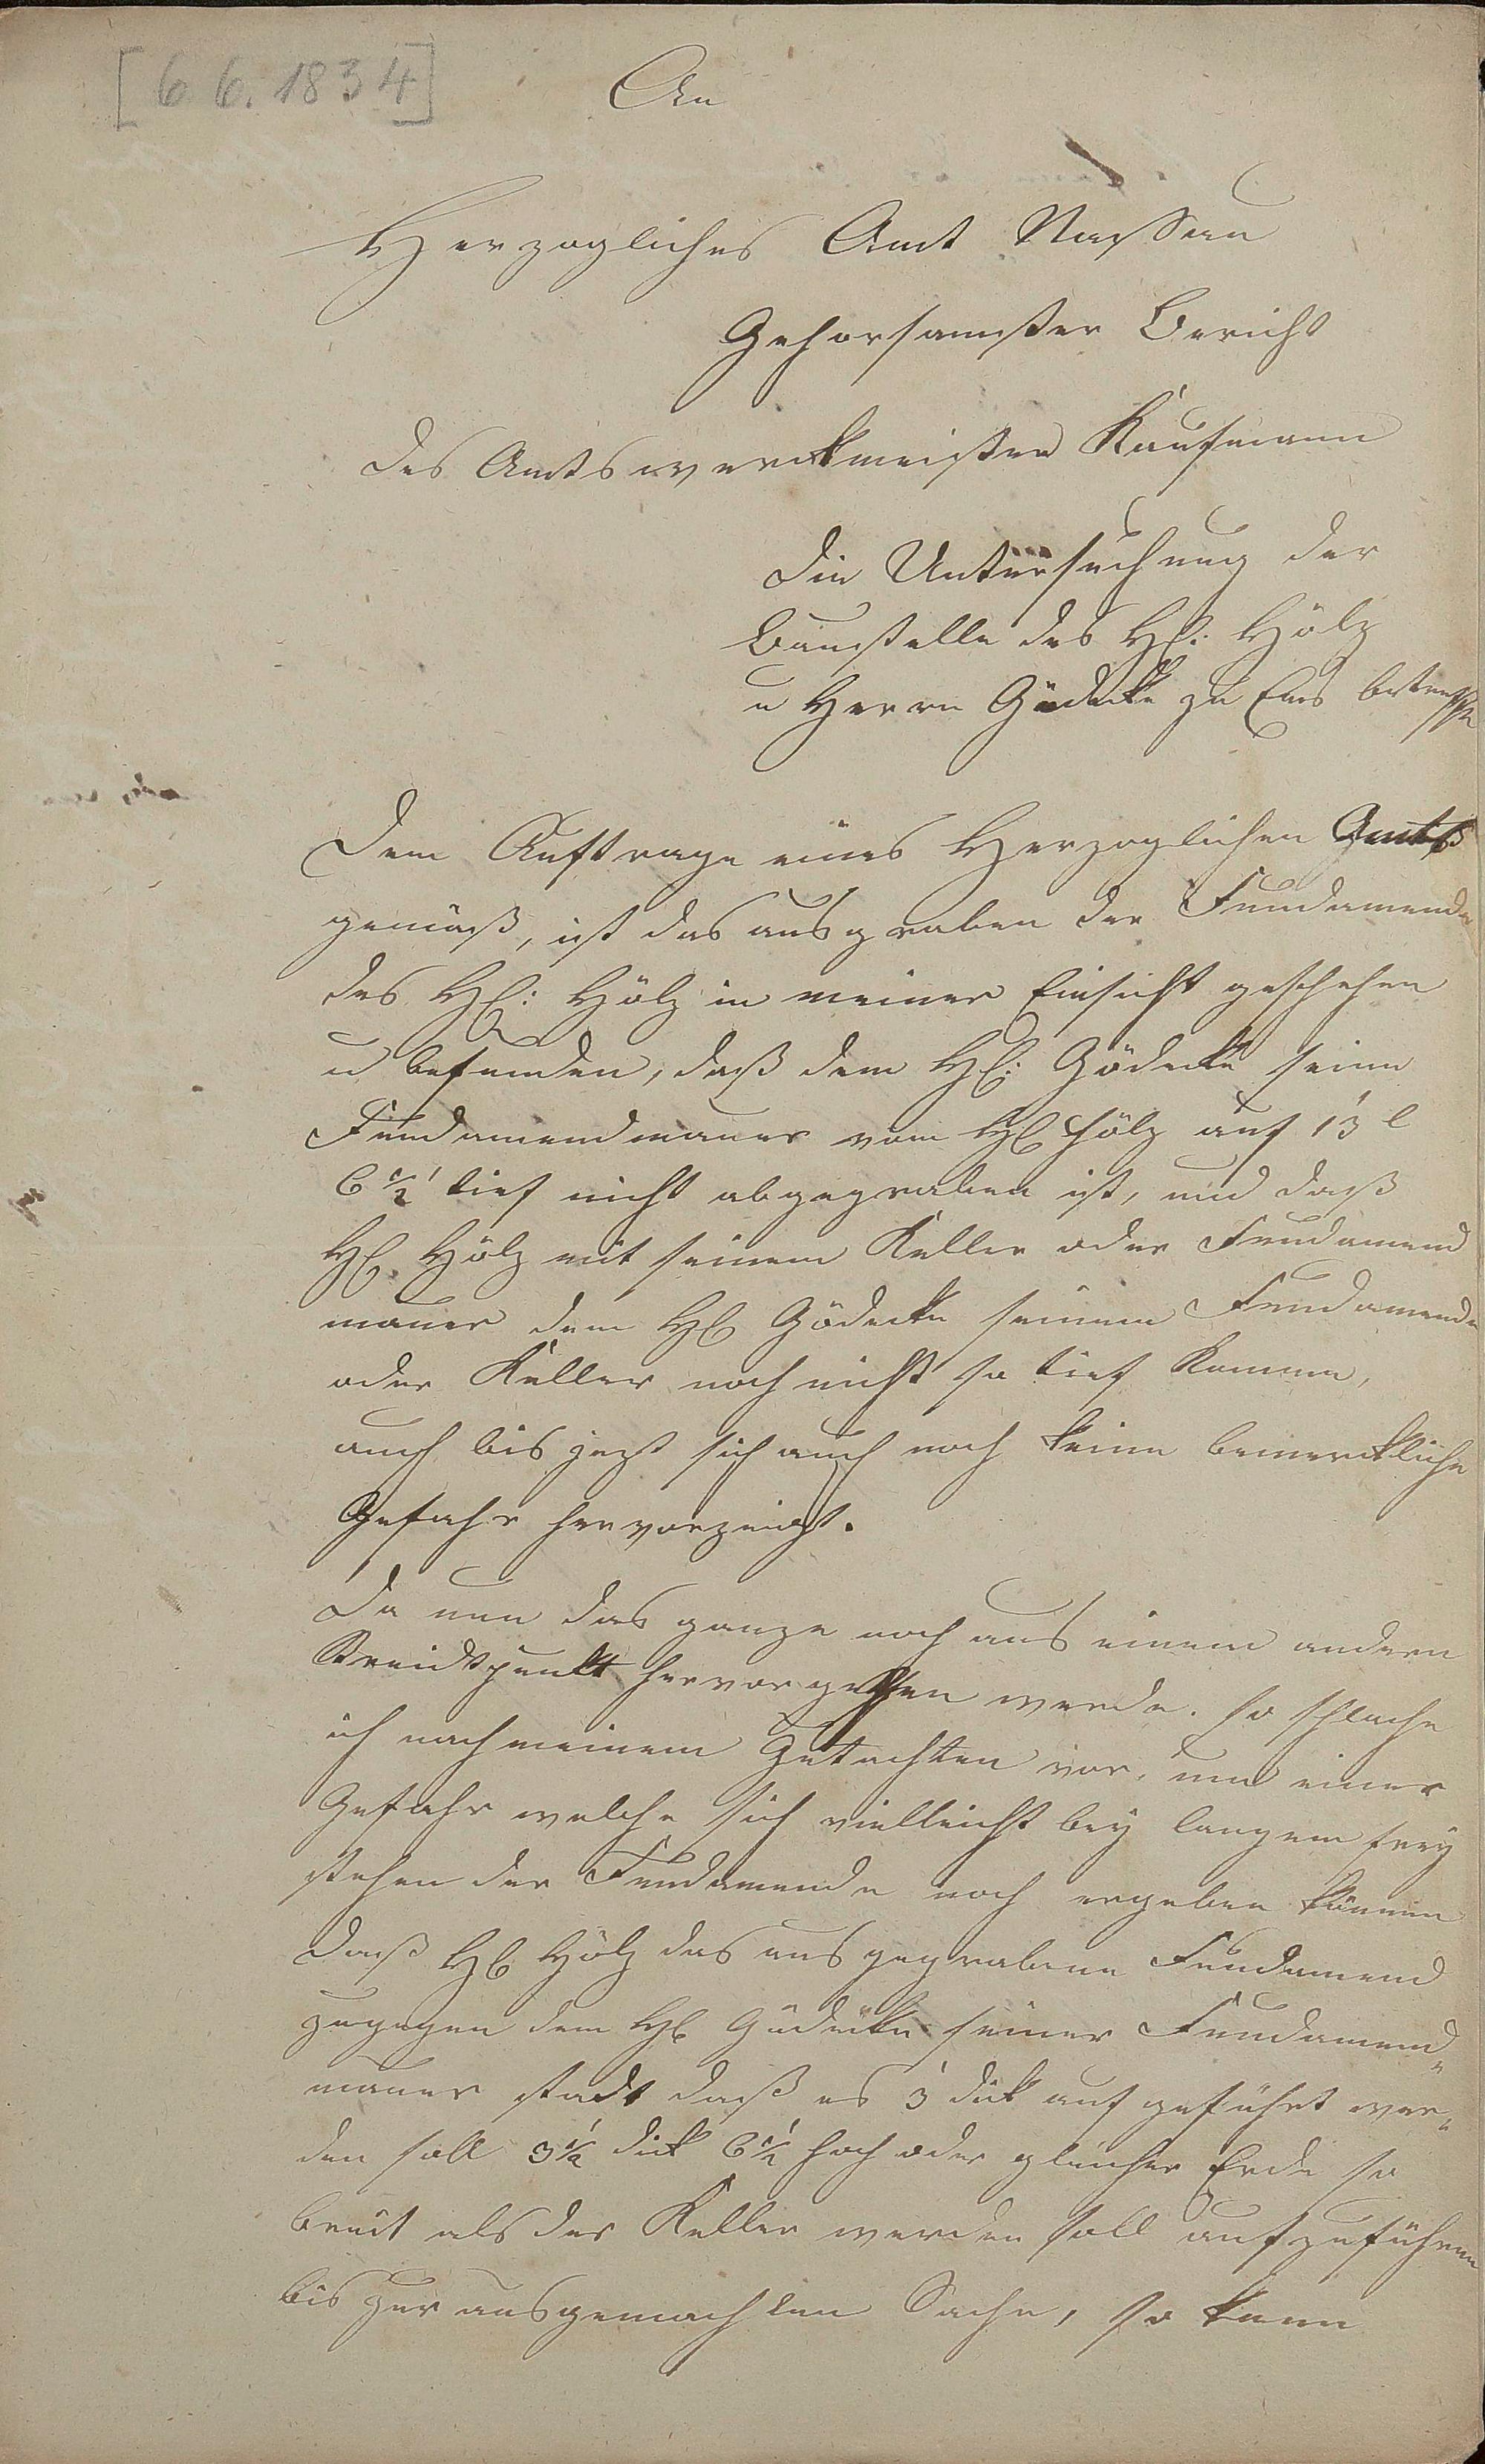 [6. 6. 1834]
An
Herzogliches Amt Nassau
Gehorsamster Bericht
des Amtswerckmeister Kaufmann
die Untersuchung der
Baustelle des H: Hölz
u Herrn Gödecke zu Ems betreffe
Dem Auftrage eines Herzoglichen Amts
gemäß, ist das ausgraben der Fundamende
des H: Hölz in meiner Einsicht geschehen
u befunden, daß dem H: Gödecke seine
Fundamendmauer vom H Hölz auf 13' l
6 1/2' tief nicht abgegraben ist, und daß
H. Hölz mit seinem Keller oder Fundamend
mauer dem H Gödecke seinem Fundamende
oder Keller noch nicht so tief komme,
auch bis jezt sich auch noch keine bemerckliche
Gefahr hervorzeigt.
Da nun das ganze noch aus einem andern
Streidtpunkt hervorgehen werde. so schlache
ich nach meinem Gutachten vor, um einer
Gefahr welche sich vielleicht bey langem frey
stehen der Fundamende noch ergeben könnne
daß H Hölz das ausgegrabene Fundamend
zugegen dem H Gödecke seiner Fundamend„
mauer stadt daß es 3' dick aufgeführt wer„
den soll 3 1/2' dick 6 1/2' hoch oder gleicher Erde so
breit als der Keller werden soll aufzuführen
bis zur ausgemachten Sache, so kann